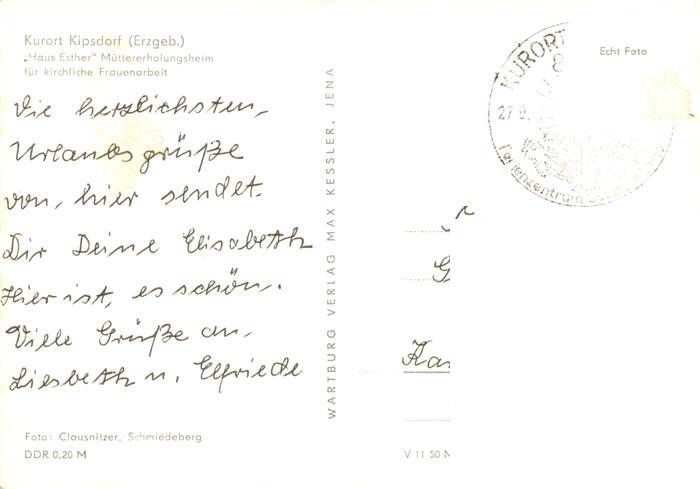 Kurort Kipsdorf (Erzgeb.)
„Haus Esther" Müttererholungsheim
für kirchliche Frauenarbeit
Die herzlichsten,
Urlaubsgrüße
von, hier sendet
Dir Deine Elisabeth
Hier ist, es schön,.
Viele Grüße an,
Liesbeth u. Elfriede
Foto: Clausnitzer, Schmiedeberg
DDR 0,20 M
WARTBURG VERLAG MAX KESSLER, JENA
Echt Foto
KURORT
27.9.
Ferienzentrum
G
Kas
V 11 50